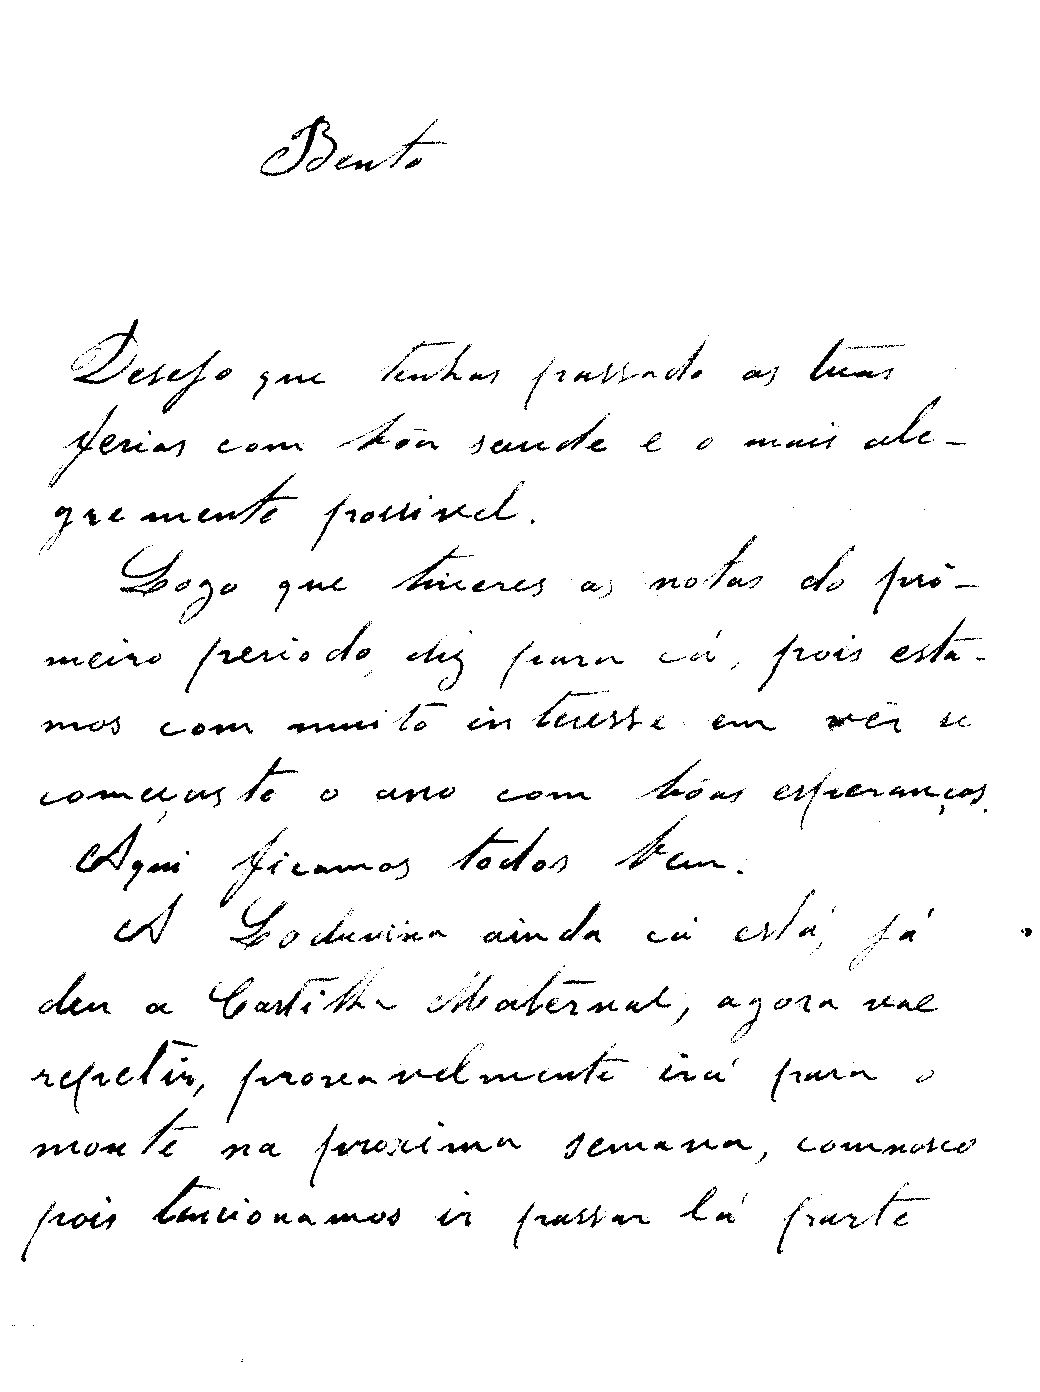 Bento
Desejo que tenhas passado as tuas
ferias com bôa saude e o mais ale-
gremente possivel.
Logo que tiveres as notas do pri-
meiro periodo, diz para cá, pois esta-
mos com muito interesse em vêr se
começaste o ano com bôas esperanças.
Aqui ficamos todos bem.
A Loduvina ainda cá está, já
deu a Cartilha Maternal, agora vae
repetir, provavelmente irá para o
monte na proxima semana, comnosco
pois tencionamos ir passar lá parte